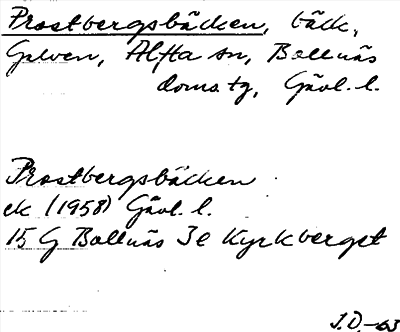 Prostbergsbäcken, bäck,
Galven, Alfta sn, Bollnäs
doms. tg, Gävl. l.
Prostbergsbäcken
ek (1958) Gävl. l.
15 G Bollnäs 3e Kyrkberget
J.D. -63